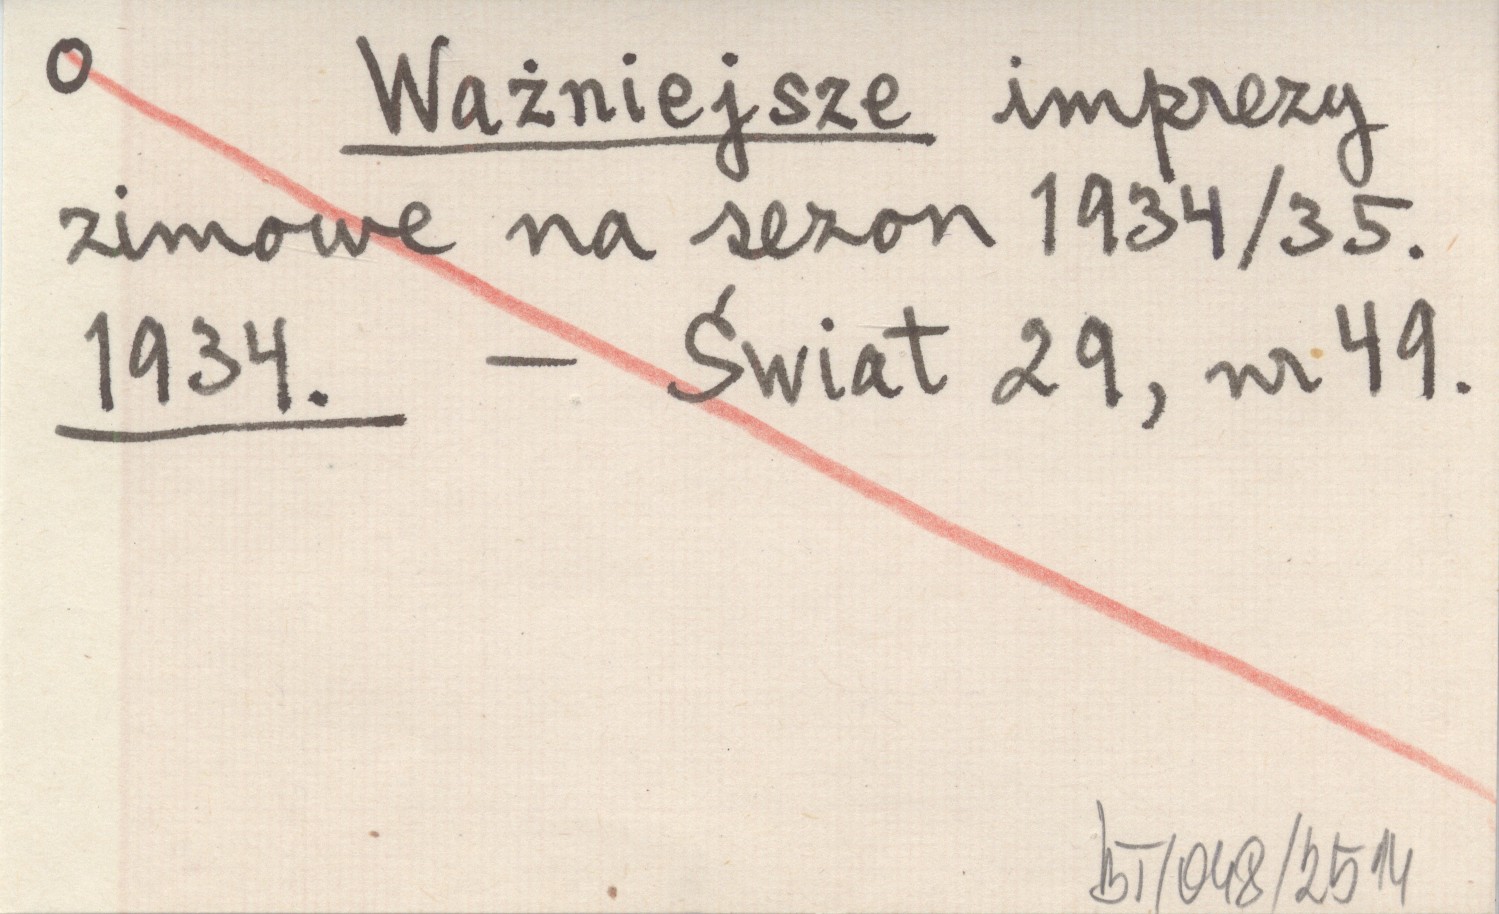 O Ważniejsze imprezy
zimowe na sezon 1934/35.
1934. — Świat 29, nr 49.
BT/048/2514